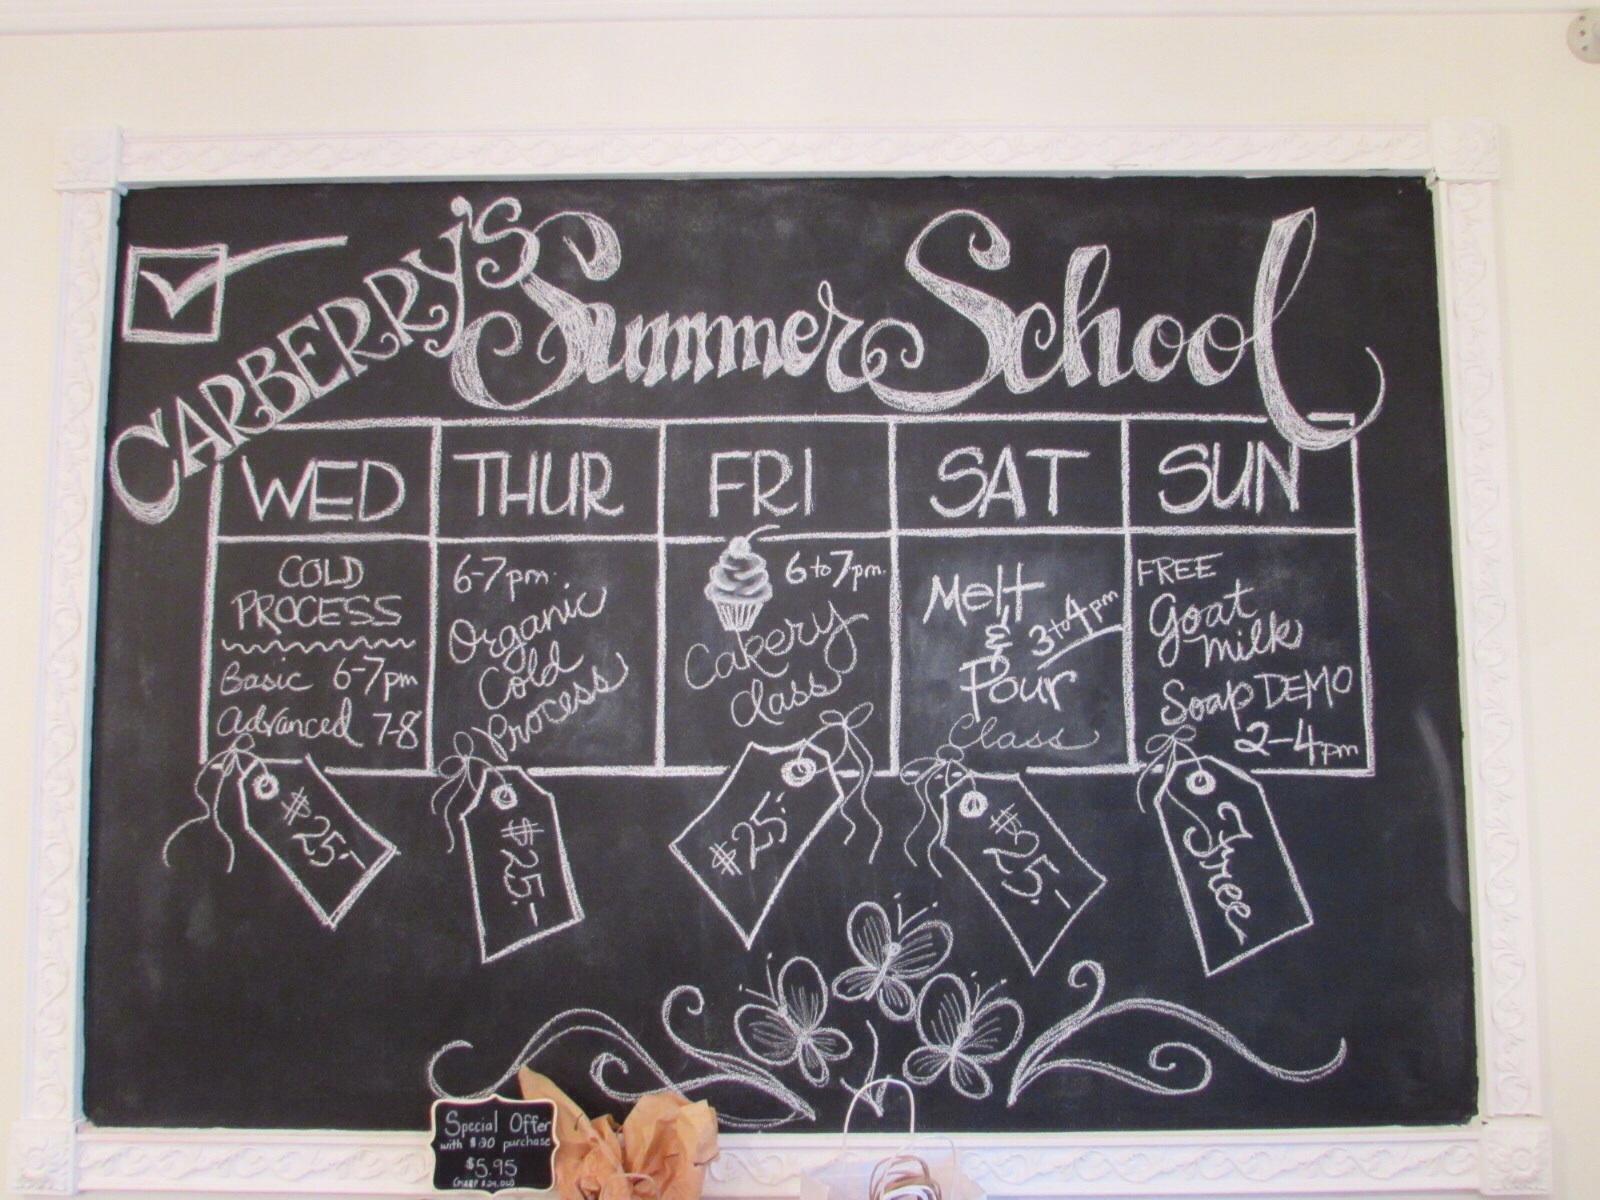 CARBERRY'S Summer School
WED
THUR
FRI
SAT
SUN
COLD
PROCESS
Basic 6-7pm
Advanced 7-8
6-7pm.
Organic
Cold
Process
6 to 7pm.
Cakery
class
Melt
&
3 to 4pm
Pour
Class
FREE
Goat
Milk
Soap DEMO
2-4pm
$25.-
$25.-
$25.-
$25.-
Free
Special Offer
with $20 purchase
$5.95